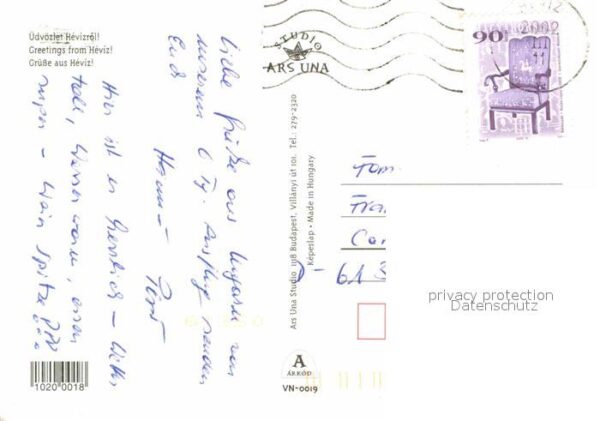 Üdvözlet Hévízről!
Greetings from Hévíz!
Grüße aus Hévíz!
Hier ist es herrlich - Wetter
toll, Wasser warm, essen
super - Wein Spitze
Liebe Grüße aus Ungarn von
unserem 6 Tg. Ausflug senden
Euch
STUDIO
ARS UNA
Ars Una Studio 1118 Budapest, Villányi út 101. Tel.: 279-2320
Képeslap • Made in Hungary
2002
90
D-613
privacy protection
Datenschutz
A
ÁRKÓD
VN-0019
1020 0018